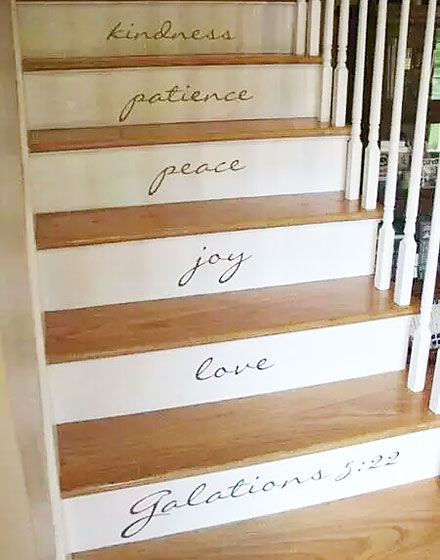 kindness
patience
peace
joy
love
Galations 5:22